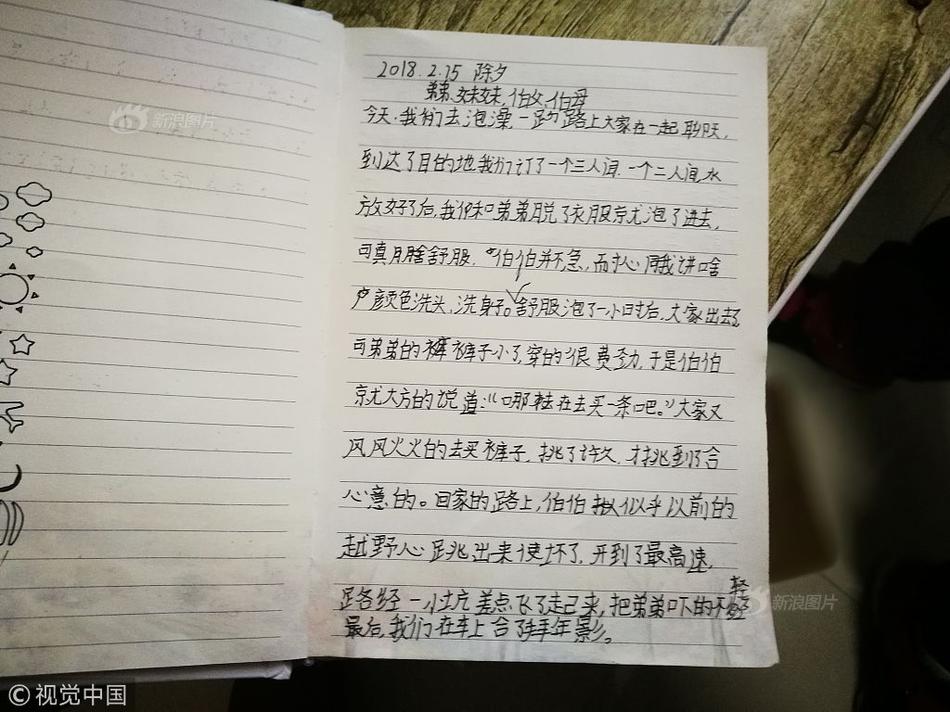 2018.2.15 除夕
弟弟、妹妹,伯父、伯母
今天,我们去泡澡,一路上大家在一起聊天,
到达了目的地我们订了一个三人间,一个二人间,水
放好了后,我和弟弟脱了衣服就泡了进去,
可真舒服,伯伯并不急,而
颜色洗头,洗身子。舒服泡了一小时后,大家出去了
可弟弟的裤裤子小了,穿的很费劲,于是伯伯
就大方的说道:“那在去买一条吧。”大家又
风风火火的去买裤子,挑了许久,才挑到了合
心意的。回家的路上,伯伯似乎以前的
越野心跳出来使坏了,开到了最高速,
路经一小坑差点飞了起来,把弟弟吓的不轻
最后,我们在车上合了年影。
新浪图片
新浪图片
© 视觉中国